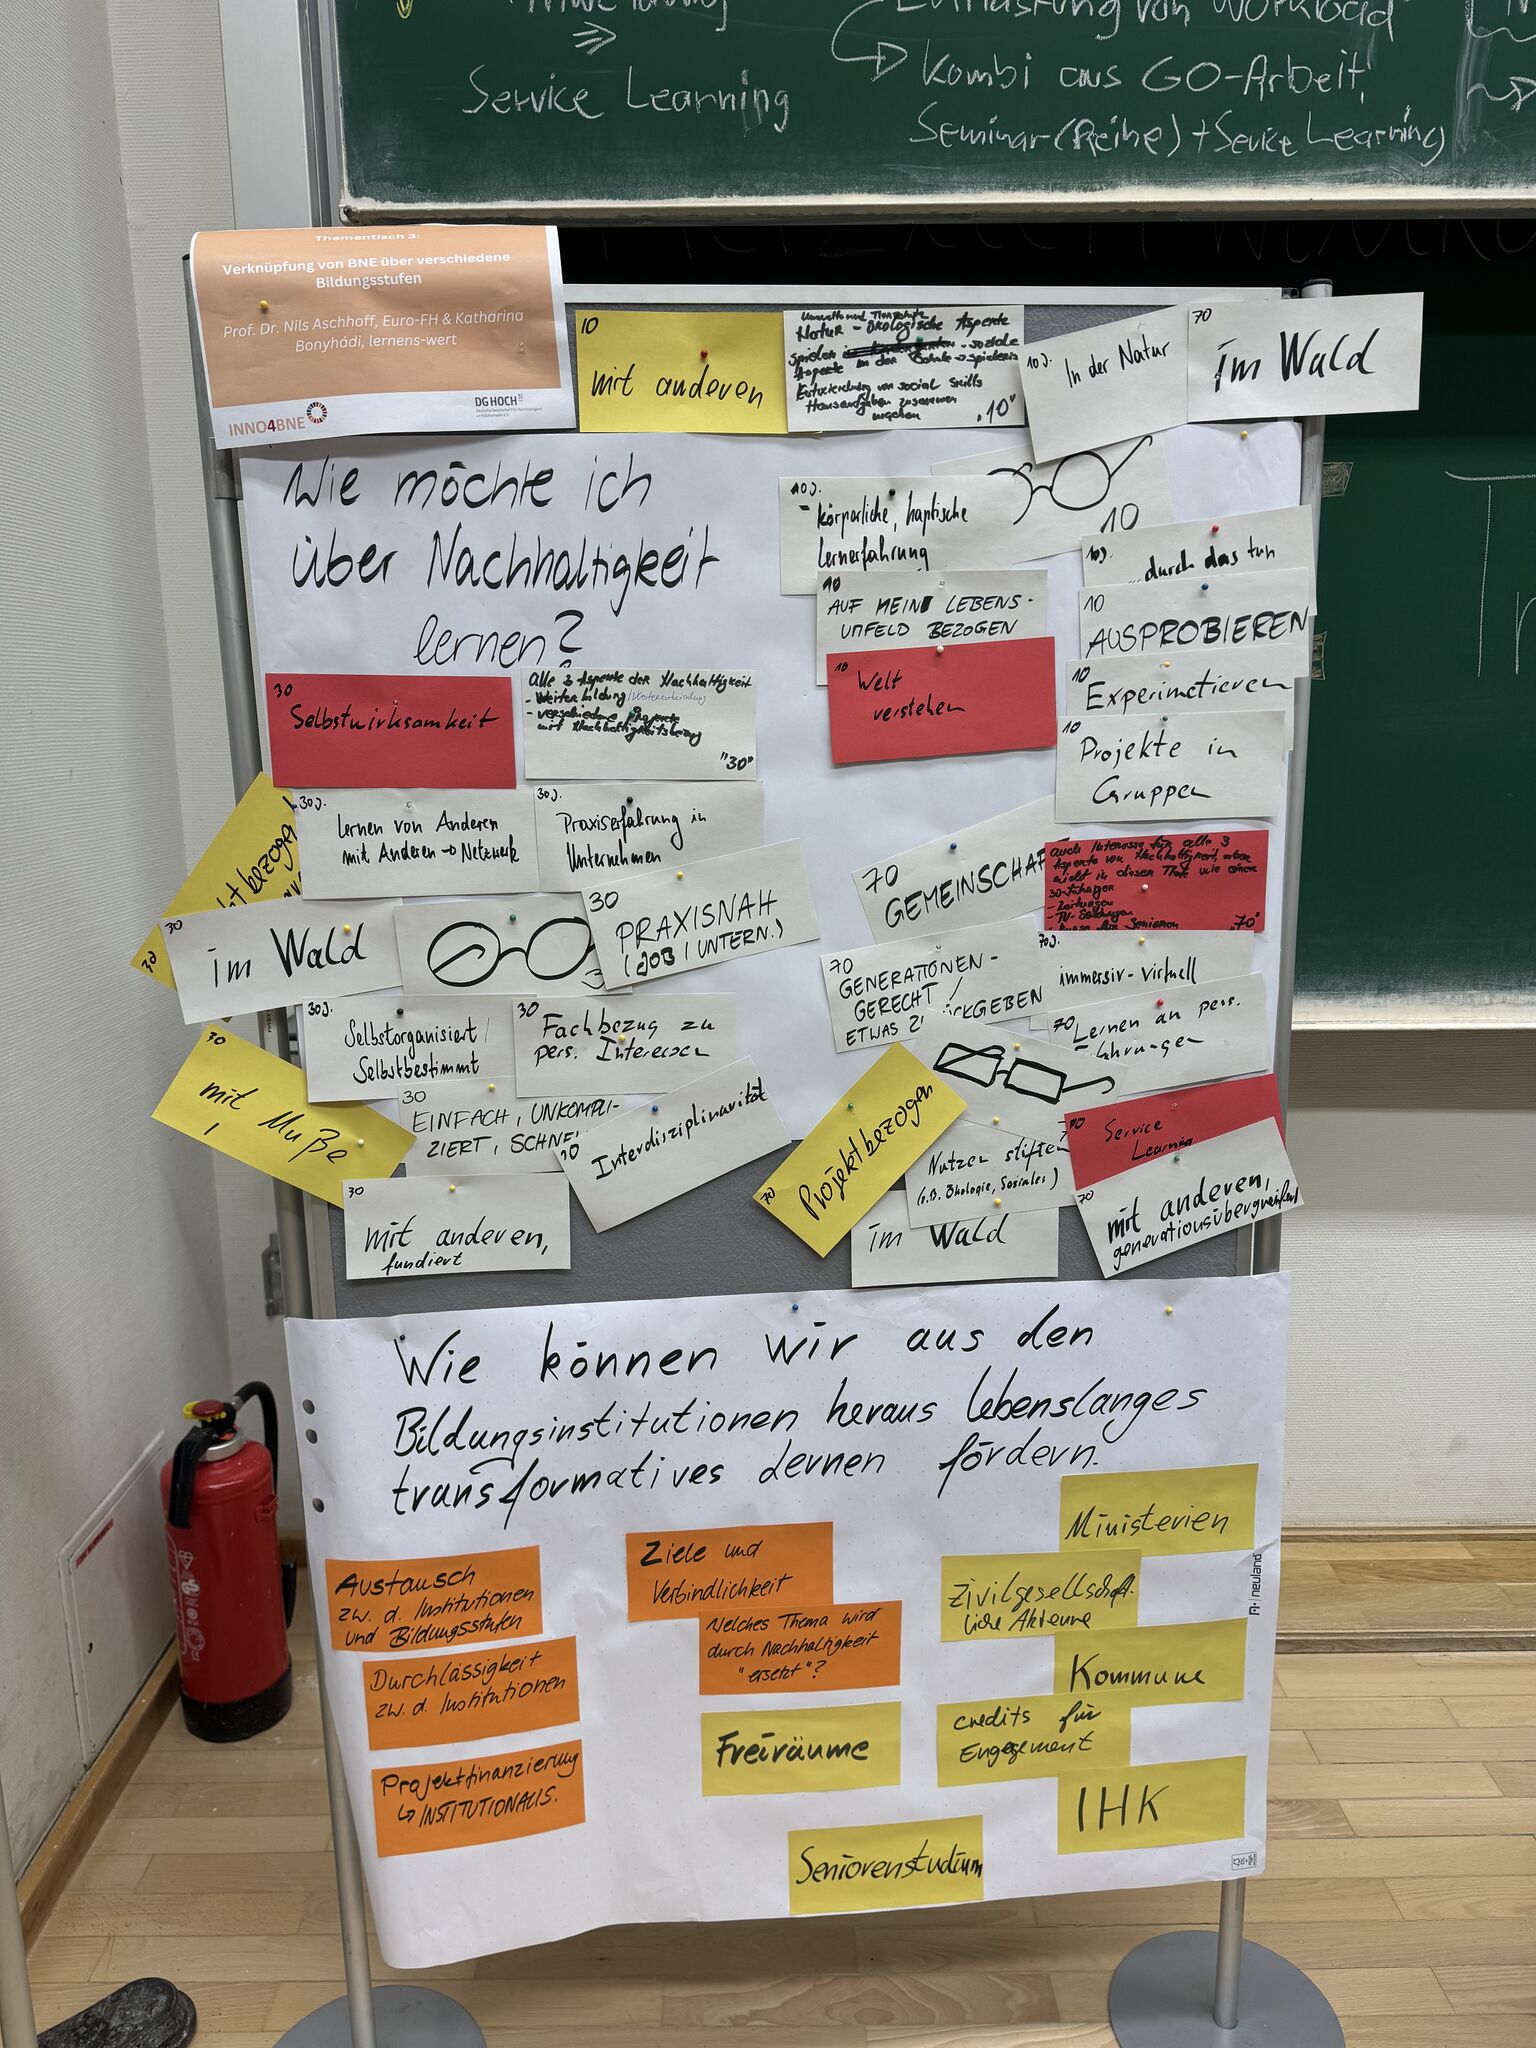 Service Learning
Entlastung von Workload
Kombi aus GO-Arbeit,
Seminar-(Reihe) + Sevice Learning
Thementisch 3:
Verknüpfung von BNE über verschiedene
Bildungsstufen
Prof. Dr. Nils Aschhoff, Euro-FH & Katharina
Bonyhádi, lernens-wert
INNO4BNE
DG HOCH N
10
mit anderen
Natur - ökologische Aspekte
Entwicklung von social skills
Hausaufgaben zusammen
machen
„10"
10J.
In der Natur
70
im Wald
Wie möchte ich
über Nachhaltigkeit
lernen?
10J.
- körperliche, haptische
Lernerfahrung
10
10J.
...durch das tun
10
AUF MEIN LEBENS-
UMFELD BEZOGEN
10
AUSPROBIEREN
10
Welt
verstehen
10
Experimetieren
10
Projekte in
Gruppen
30
Selbstwirksamkeit
alle 3 Aspekte der Nachhaltigkeit
- Weiterbildung
- verschiedene Projekte
mit Nachhaltigkeitsbezug
"30"
30J.
Lernen von Anderen
mit Anderen → Netzwerk
30J.
Praxiserfahrung in
Unternehmen
30
30
im Wald
30
PRAXISNAH
(JOB / UNTERN.)
30J.
Selbstorganisiert /
Selbstbestimmt
30
Fachbezug zu
pers. Interessen
30
mit Muße
30
EINFACH, UNKOMPLI-
ZIERT,
30
Interdisziplinarität
30
mit anderen,
fundiert
70
GEMEINSCHAF
auch Interesse für alle 3
Aspekte von Nachhaltigkeit, aber
nicht in dieser Tiefe wie einer
30-Jähriger
- Zeitungen
- TV-Sendungen
„70"
70
GENERATIONEN-
GERECHT /
ETWAS
70J.
immersiv-virtuell
70
Lernen an pers.
70
Projektbezogen
Nutzen stiften
(z.B. Ökologie, Soziales)
70
Service
im Wald
70
mit anderen,
generationsübergreifend
Wie können wir aus den
Bildungsinstitutionen heraus lebenslanges
transformatives Lernen fördern.
Austausch
zw. d. Institutionen
und Bildungsstufen
Durchlässigkeit
zw. d. Institutionen
Projektfinanzierung
↳ INSTITUTIONALIS.
Ziele und
Verbindlichkeit
Welches Thema wird
durch Nachhaltigkeit
"ersetzt"?
Freiräume
Seniorenstudium
Ministerien
Zivilgesellschaft-
liche Akteure
Kommune
credits für
Engagement
IHK
neuland